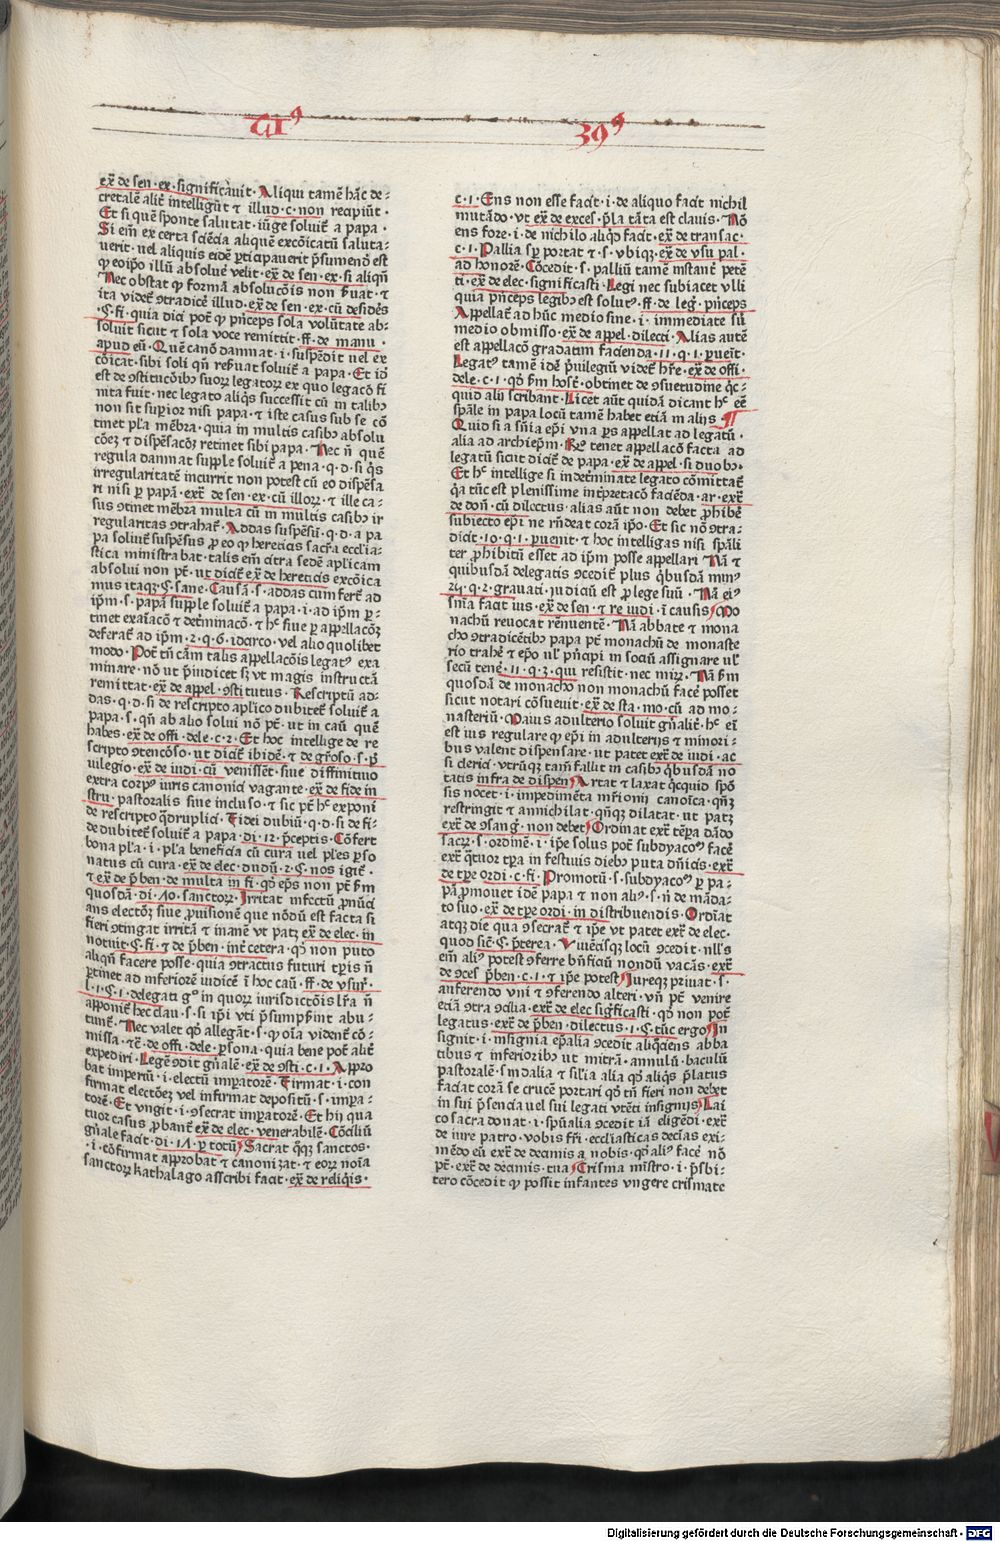 39⁹
ex̄ de sen·ex·significauit·Aliqui tamē hāc de⸗
cretalē alit̄ intelligūt ⁊ illud·c·non recipiūt·
Et si quē sponte salutat·iūge soluit̄ a papa·
Si em̄ ex certa sciēcia aliquē excōicatū saluta⸗
uerit·uel aliquis eidē ꝑticipauerit p̄sumendo est
ꝙ eoip̄o illū absoluē velit·ex̄ de sen·ex·si aliqn̄
Nec obstat ꝙ forma absolucōis non ẜuat·⁊
ita videt̄ ꝯtradicē illud·ex̄ de sen·ex·cū desidēs
·C·fi·quia dici pōt ꝙ pn̄ceps sola volūtate ab⸗
soluit sicut ⁊ sola voce remittit·ff·de manu·
apud eū·Quē canō damnat·i·suspēdit uel ex
cōicat·sibi soli qn̄ reẜuat soluit̄ a papa·Et iō
est de ꝯstitucōibꝫ suoꝝ legatoꝝ ex quo legacō fi
nita fuit·nec legato aliqs successit cū in talibꝫ
non sit supior nisi papa·⁊ iste casus sub se cō
tinet pl̄a mēbra·quia in multis casibꝫ absolu
cōeꝫ ⁊ dispēsacōꝫ retinet sibi papa·Nec n̄ quē
regula damnat supple soluit̄ a pena·q·d·si q̄s
irregularitatē incurrit non potest cū eo dispēsa
ri nisi ꝑ papā·ext̄ de sen·ex·cū illoꝝ·⁊ ille ca⸗
sus ꝯtinet mēbra multa cū in multis casibꝫ ir
regularitas ꝯtrahat̄·Addas suspēsū·q·d·a pa
pa soluit̄ suspēsus ꝓ eo ꝙ hereticis sacr̄a eccl̄ia⸗
stica ministrabat·talis em̄ citra sedē aplicam
absolui non pt̄·ut dicit̄ ex̄ de hereticis excōica
mus itaqꝫ·C·sane·Causā·s·addas cum fert̄ ad
ip̄m·s·papā supple soluit̄ a papa·i·ad ip̄m ꝑ⸗
tinet exaīacō ⁊ det̄minacō·⁊ hᶜ siue ꝑ appellacōꝫ
deferat̄ ad ip̄m·2·q·6·idarco·vel alio quolibet
modo·Pot̄ tn̄ cām talis appellacōis legatꝰ exa
minare·nō ut p̄iudicet sꝫ vt magis instructā
remittat·ex̄ de appel·ꝯstitutus·Rescriptū ad⸗
das·q·d·si de rescripto aplico dubitet̄ soluit̄ a
papa·s·qn̄ ab alio solui nō pt̄·ut in caū quē
habes·ex̄ de offi·dele·c·2·Et hoc intellige de re
scripto ꝯtencōso·ut dicit̄ ibidē·⁊ de gr̄oso·s·p̄
uilegio·ex̄ de iudi·cū venissēt·siue diffinitiuo
extra corpꝰ iuris canonici vagante·ex̄ de fide in
stru·pastoralis siue incluso·⁊ sic pt̄ hᶜ exponi
de rescripto q̄druplici·Fidei dubiū·q·d·si de fi⸗
de dubitet̄ soluit̄ a papa·di·12·p̄ceptis·Cōfert
bona pl̄a·i·pl̄a beneficia cū cura uel pl̄es ꝑso
natus cū cura·ex̄ de elec·dudū·2·C·nos igit̄·
⁊ ex̄ de p̄ben·de multa in fi·qđ ep̄s non pt̄ ẜm
quosdā·di·10·sanctoꝝ·Irritat infectū ꝓnūci
ans electōꝫ siue ꝓuisionē que nōdū est facta si
fieri ꝯtingat irritā ⁊ inanē vt patꝫ ex̄ de elec·in
notuit·C·fi·⁊ de p̄ben·int̄ cetera·qđ non puto
aliqn̄ facere posse·quia ꝯtractus futuri tꝑis n̄
ꝑtinet ad inferiorē iudicē ī hoc caū·ff·de vsur̄·
l·1·C·1·delegati gᵒ in quoꝝ iurisdictōis lr̄a n̄
apponit̄ hec clau·s·si ip̄i vti p̄sumpẜint abu⸗
tunt̄·Nec valet qđ allegāt·s·ꝙ oīa vident̄ cō⸗
missa·⁊c̄·de offi·dele·ꝑsona·quia bene pōt alit̄
expediri·Legē ꝯdit gn̄alē·ex̄ de ꝯsti·c·1·Appro
bat imperiū·i·electū imꝑatorē·Firmat·i·con
firmat electōeꝫ vel infirmat depositū·s·imꝑa⸗
torē·Et vngit·i·ꝯsecrat imꝑatorē·Et hij qua
tuor casus ꝓbant̄ ex̄ de elec·venerabilē·Cōciliū
gn̄ale facit·di·17·ꝑ totū·Sacrat qᷓꝫ sanctos·
·i·cōfirmat approbat ⁊ canonizat·⁊ eoꝝ noīa
sanctoꝝ kathalago asscribi facit·ex̄ de reliq̄is·
c·1·Ens non esse facit·i·de aliquo facit nichil
mutādo·vt ex̄ de exces·p̄la tāta est clauis·Nō
ens fore·i·de nichilo aliqđ facit·ex̄ de transac·
c·1·Pallia sꝑ portat ⁊·s·vbiqꝫ·ex̄ de vsu pal·
ad honorē·Cōcedit·s·palliū tamē instant̄ petē
ti·ex̄ de elec·significasti·Legi nec subiacet vlli
quia pn̄ceps legibꝫ est solutꝰ·ff·de leḡ·pn̄ceps
Appellat̄ ad hūc medio sine·i·immediate siū
medio obmisso·ex̄ de appel·dilecti·Alias autē
est appellacō gradatim facienda·11·q·1·ꝑueīt̄·
Legatꝰ tamē idē p̄uilegiū videt̄ hr̄e·ex̄ de offi·
dele·c·1·qđ ẜm host̄·obtinet de ꝯsuetudine q̄c⸗
quid alij scribant·Licet aūt quidā dicant hᶜ eē
spāle in papa locū tamē habet etiā in alijs·¶
Quid si a sn̄ia epī vna ꝑs appellat ad legatū·
alia ad archiepm̄·Rᵒ tenet appellacō facta ad
legatū sicut dicit̄ de papa·ex̄ de appel·si duobꝫ·
Et hᶜ intellige si indet̄minate legato cōmittat̄
q̄a tūc est plenissime int̄pretacō faciēda·ar·ext̄
de don̄·cū dilectus·alias aūt non debet ꝓhibē
subiecto epī ne rn̄deat corā ip̄o·Et sic nō ꝯtra⸗
dicit·10·q·1·ꝑuenit·⁊ hoc intelligas nisi spāli
ter ꝓhibitū esset ad ip̄m posse appellari Nā ⁊
quibusdā delegatis ꝯcedit̄ plus q̄busdā minꝰ
24·q·2·grauati·iudiciū est ꝓ lege suū·Nā eiꝰ
sn̄ia facit ius·ex̄ de sen·⁊ re iudi·ī causis·Mo
nachū reuocat rennuentē·Nā abbate ⁊ mona
cho ꝯtradicētibꝫ papa pt̄ monachū de monaste
rio trahē ⁊ ep̄o ul̄ pn̄cipi in sociū assignare ul̄
secū tenē·11·q·3·qui resistit·nec miꝝ·Nā ẜm
quosdā de monacho non monachū facē posset
sicut notari cōsueuit·ex̄ de sta·mo·cū ad mo⸗
nasteriū·Maius adulterio soluit gn̄alit̄·hᶜ eī
est ius regulare ꝙ epī in adulterijs ⁊ minori⸗
bus valent dispensare·ut patet ext̄ de iudi·ac
si clerici·vtrūqꝫ tam̄ fallit in casibꝫ q̄busdā no
tatis infra de dispen·Artat ⁊ laxat q̄cquid spō
sis nocet·i·impedimēta mr̄ionij canoīca·qn̄ꝫ
restringit ⁊ annichilat·qn̄qꝫ dilatat·ut patꝫ
ext̄ de ꝯsanḡ·non debet·Ordinat ext̄ tēpa dādo
sacꝝ·s·ordinē·i·ip̄e solus pōt subdyacoꝰ facē
ext̄ q̄tuor tp̄a in festiuis diebꝫ puta dn̄icis·ext̄
de tp̄e ordi·c·fi·Promotū·s·subdyacoꝰ ꝑ pa⸗
pā ꝓmouet idē papa ⁊ non aliꝰ·s·n̄ de māda⸗
to suo·ex̄ de tp̄e ordi·in distribuendis·Ordīat
atqꝫ die qua ꝯsecrat̄ ⁊ ip̄e vt patet ext̄ de elec·
quod sic̄·C·p̄terea·Viuēcisqꝫ locū ꝯcedit·nll̄s
em̄ aliꝰ potest ꝯferre bn̄ficiū nondū vacās·ext̄
de ꝯces̄ p̄ben·c·1·⁊ ip̄e potest·Iureqꝫ priuat·s·
auferendo vni ⁊ ꝯferendo alteri·vn̄ pt̄ venire
etiā ꝯtra ꝯcilia·ext̄ de elec sig̈ficasti·qđ non pōt
legatus·ext̄ de p̄ben·dilectus·1·C·tūc ergo·In
signit·i·insignia ep̄alia ꝯcedit aliqn̄ciens abba
tibus ⁊ inferioribꝫ ut mitrā·annulū·baculū
pastoralē·sādalia ⁊ sil̄ia alia qđ aliq̄s p̄latus
faciat corā se crucē portari qđ tn̄ fieri non debet
in sui p̄sencia uel sui legati vtēti insignijs·Lai
co sacra donat·i·spūalia ꝯcedit iā eligēdi·ext̄
de iure patro·vobis fr̄i·eccl̄iasticas decīas exi⸗
mēdo eū ext̄ de decimis a nobis·qđ aliꝰ facē nō
pt̄·ext̄ de decimis·tua·Crisma mīstro·i·p̄sbi⸗
tero cōcedit ꝙ possit infantes vngere crismate
Digitalisierung gefördert durch die Deutsche Forschungsgemeinschaft - DFG